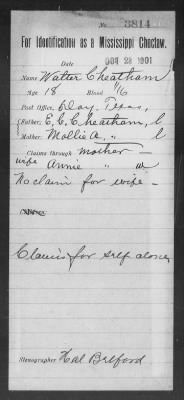 No. 3814
For Identification as a Mississippi Choctaw.
OCT 28 1901
Name Walter Cheatham
Age 18 Blood 1/16
Post Office, Clay, Texas,
Father: E. C. Cheatham, C
Mother: Mollie A., " C
Claims through mother —
wife Annie " w
No claim for wife —
Claims for self alone
Stenographer Hal Belford